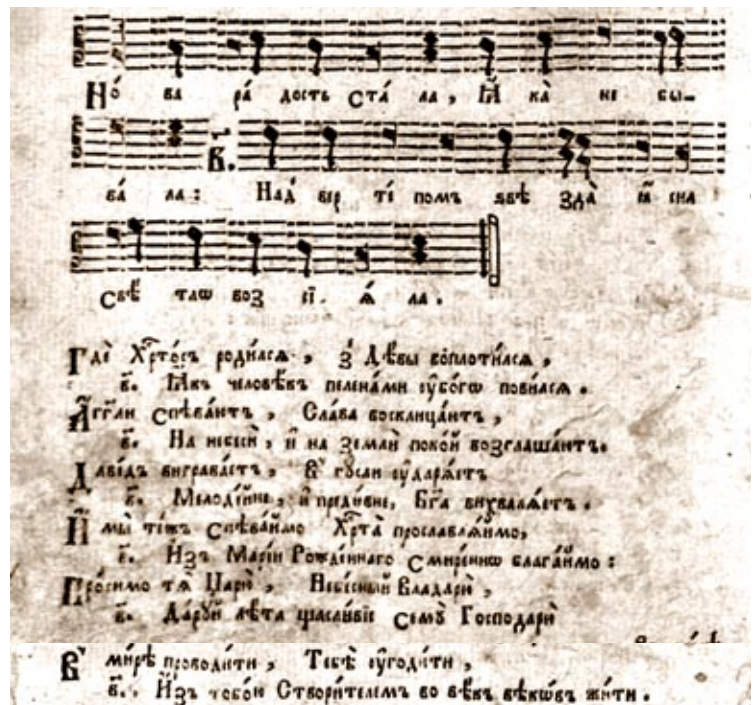 Но́ ва ра́ дость ста́ ла, ꙗ҆́ ка̀ не бы-
ва́ ла: Над̾ вер те́ помъ ѕвѣ зда̀ ꙗ҆ сна
свѣ тлѡ воз сїѧ́ ла.
Гдѐ Хрⷭ҇то́съ роди́лсѧ, з̾ Дѣ́вы воплоти́лсѧ,
в҃. Ꙗ҆́къ человѣ́къ пелена́ми оу҆бо́гѡ пови́лсѧ.
А҆́гг҃ли спѣва́ютъ, Сла́ва восклица́ютъ,
в҃. На небесѝ, и҆ на землѝ поко́й возглаша́ютъ.
Даві́дъ виграва́етъ, в̾ гꙋ́сли оу҆дарѧ́етъ
в҃. Мелоді́йне, и҆ преди́вне, Бг҃а вихвалѧ́етъ.
И҆ мы̀ те́жъ спѣва́ймо Хрⷭ҇та̀ прославлѧ́ймо,
в҃. И҆зъ Марі́и Рожде́ннаго смире́ннѡ блага́ймо:
Про́симо тѧ̀ Царю̀, Небе́сный Владарю̀,
в҃. Да́рꙋй лѣ́та щасли́вїе семꙋ̀ Господарю̀
В̾ ми́рѣ проводи́ти, Тебѣ̀ оу҆годи́ти,
в҃. И҆зъ тобо́ю Створи́телемъ во вѣ́къ вѣкѡ́въ жи́ти.